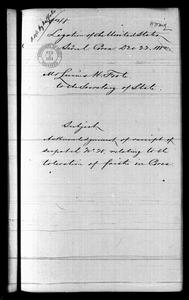 Legation of the United States
Seoul, Corea Dec 22. 188
Mr Lucius H. Foote
to the Secretary of State.
Subject
Acknowledgment of receipt of
despatch No. relating to the
toleration of faiths in Corea